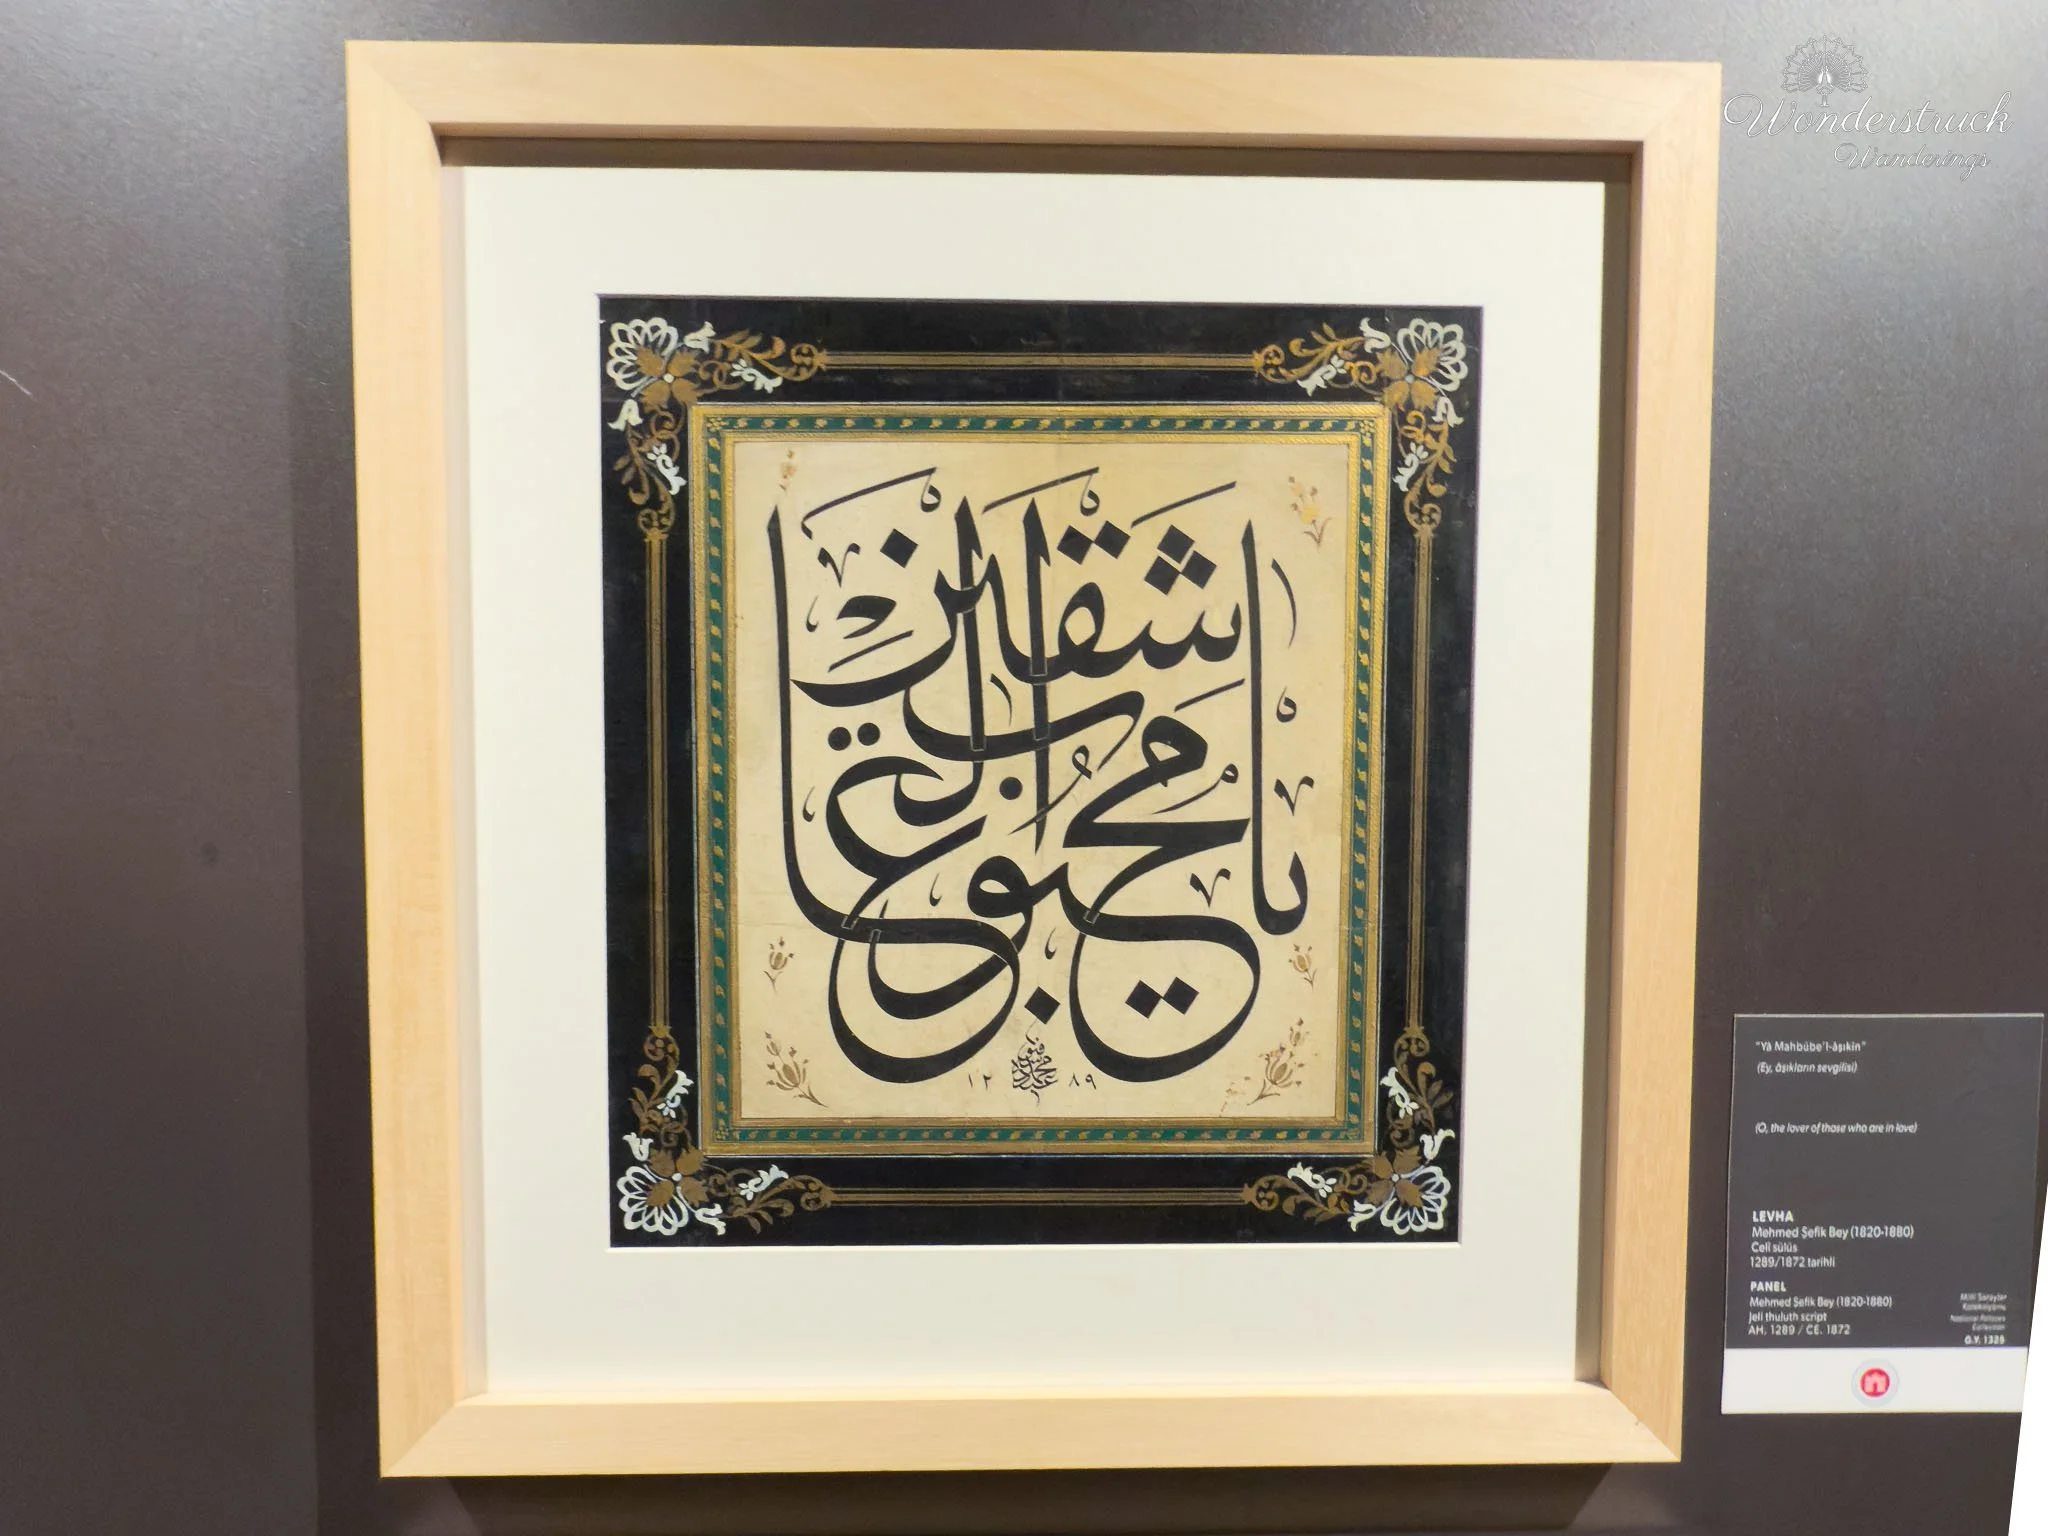 Wonderstruck
Wanderings
يا محبوب العاشقين
١٢٨٩
"Yâ Mahbûbe'l-âşıkîn"
(Ey, âşıkların sevgilisi)
(O, the lover of those who are in love)
LEVHA
Mehmed Şefik Bey (1820-1880)
Celî sülüs
1289/1872 tarihli
PANEL
Mehmed Şefik Bey (1820-1880)
Jeli thuluth script
AH. 1289 / CE. 1872
Milli Saraylar
Koleksiyonu
National Palaces
Collection
G.Y. 1328